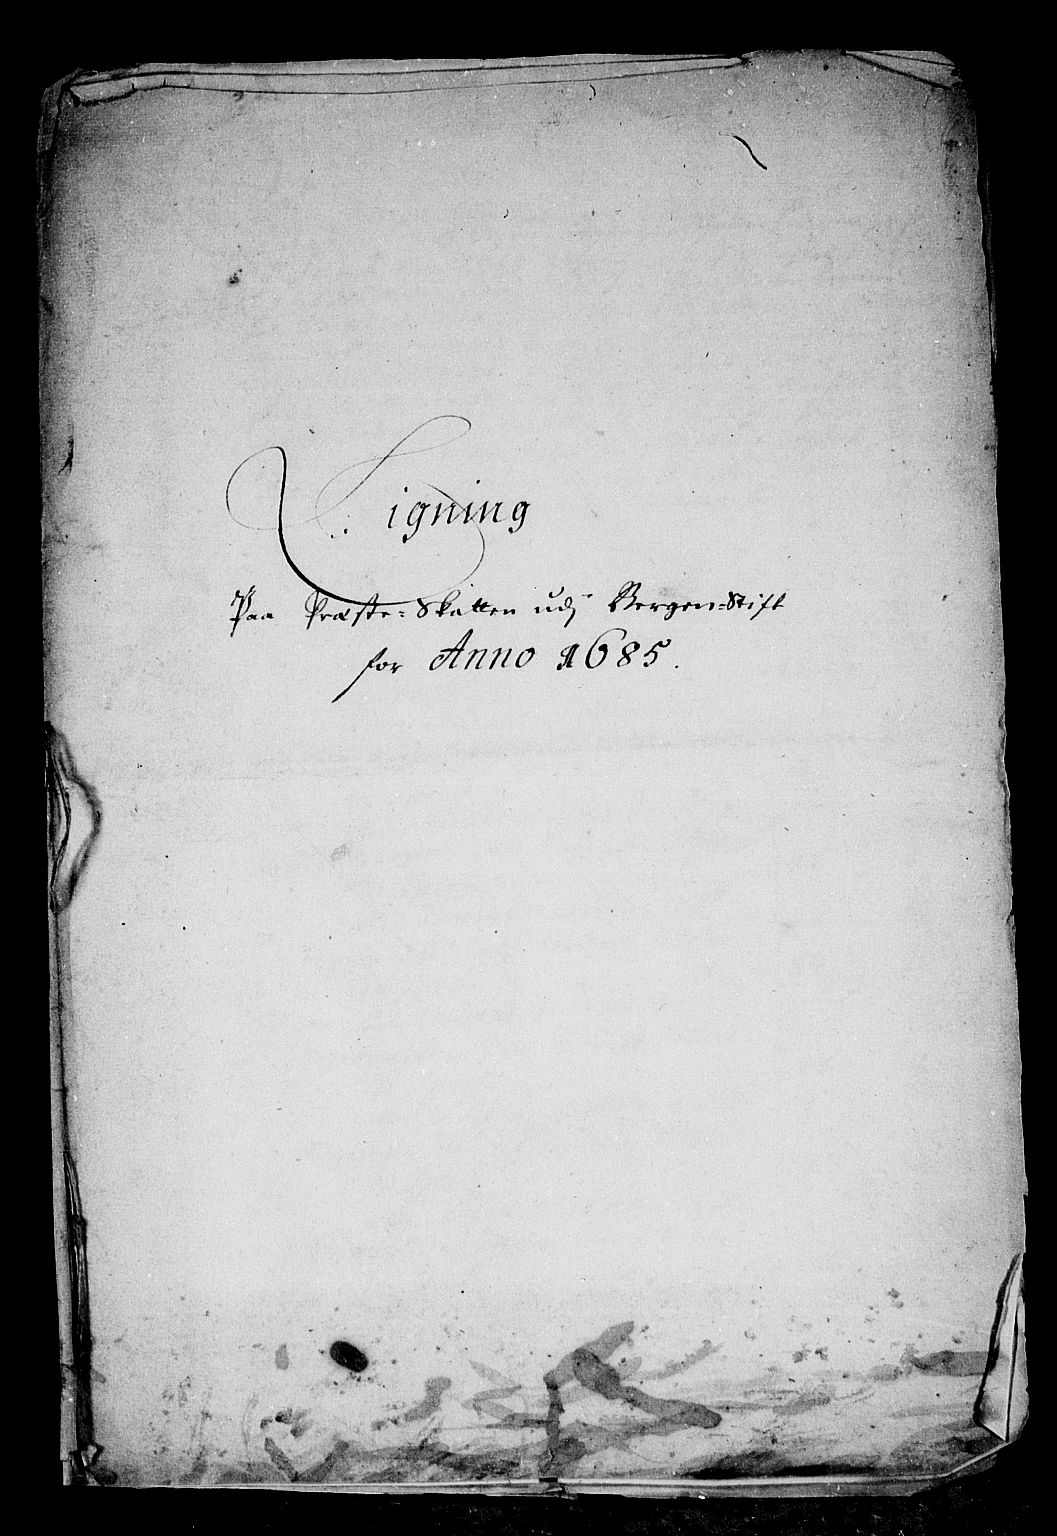 Ligning
Paa Præste-Skatten udj Bergen-Stift
for Anno 1685.